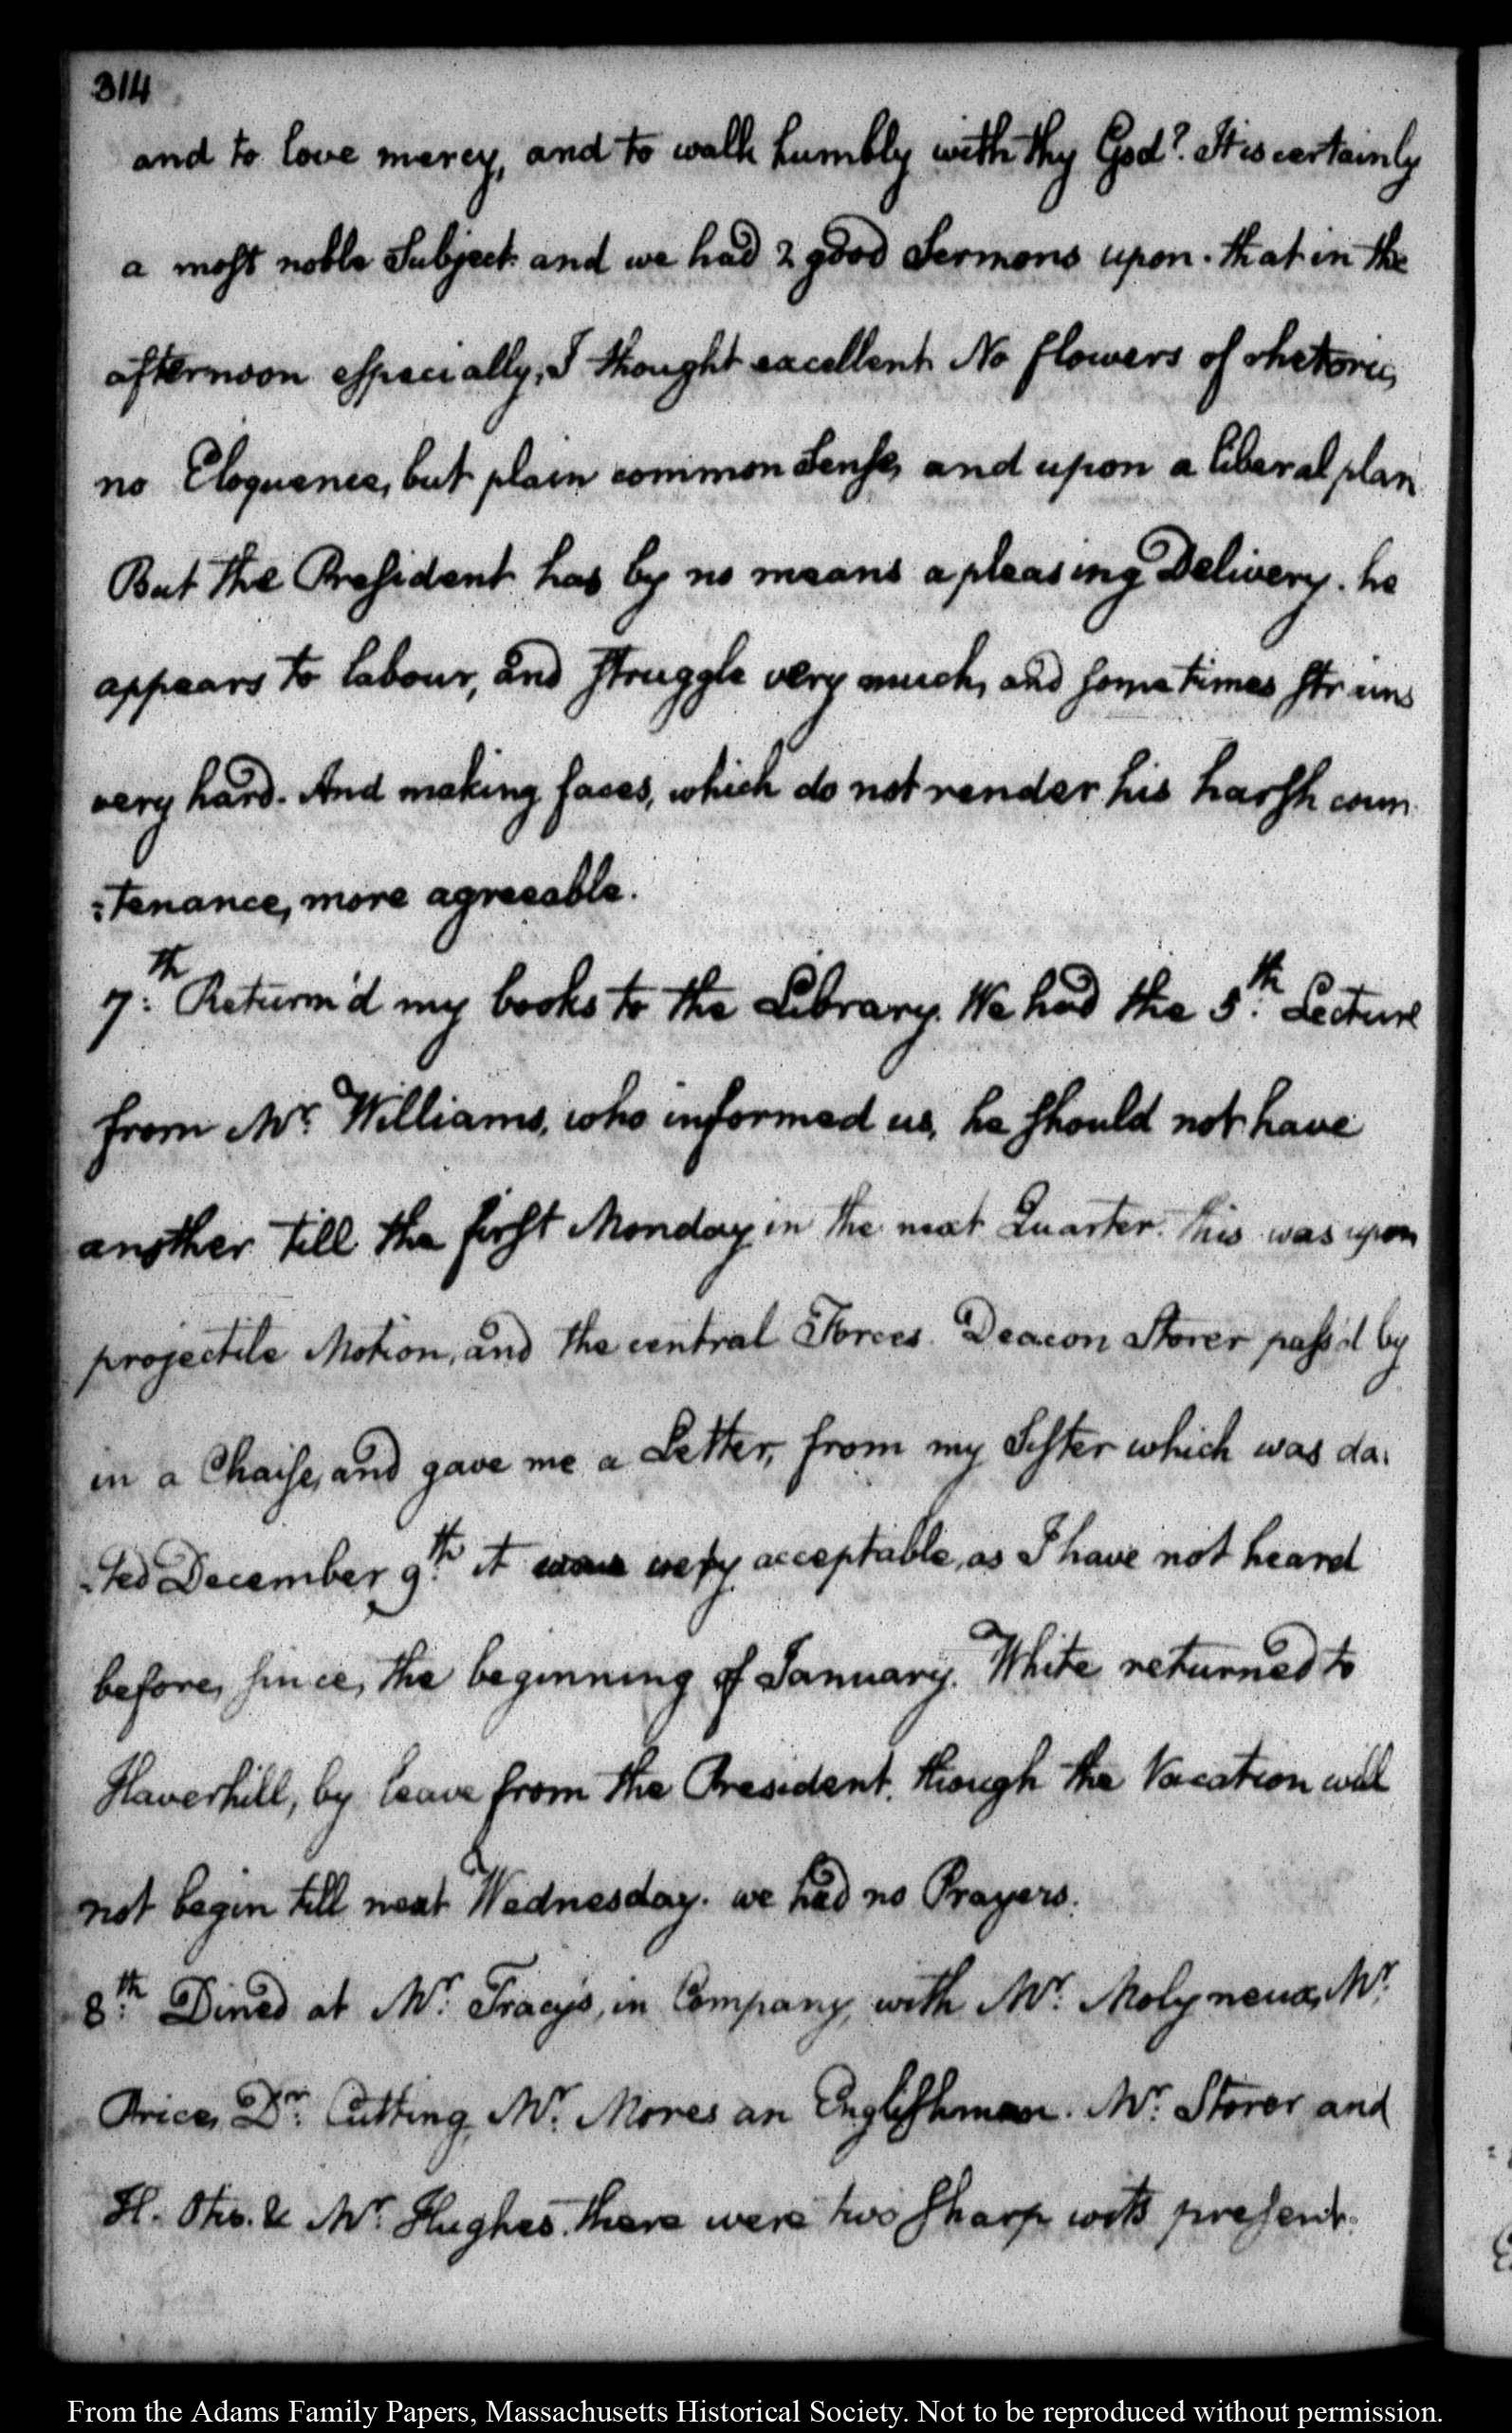 314
and to love mercy, and to walk humbly with thy God? It is certainly
a most noble Subject and we had 2 good Sermons upon. that in the
afternoon especially, I thought excellent. No flowers of rhetoric,
no Eloquence, but plain common Sense, and upon a liberal plan
But the President has by no means a pleasing Delivery. he
appears to labour, and struggle very much, and sometimes strains
very hard. And making faces, which do not render his harsh coun
:tenance, more agreeable.
7:th Return'd my books to the Library. We had the 5:th Lecture
from Mr. Williams, who informed us, he should not have
another till the first Monday in the next Quarter. this was upon
projectile Motion, and the central Forces. Deacon Storer pass'd by
in a Chaise, and gave me a Letter, from my Sister which was da:
:ted December 9:th it very acceptable, as I have not heard
before, since, the beginning of January. White returned to
Haverhill, by leave from the President. though the Vacation will
not begin till next Wednesday. we had no Prayers.
8:th Dined at Mr. Tracy's, in Company, with Mr. Molyneux, Mr.
Price, Dr. Cutting, Mr. Mores an Englishman. Mr. Storer and
H. Otis. & Mr. Hughes. there were two sharp wits present.
From the Adams Family Papers, Massachusetts Historical Society. Not to be reproduced without permission.